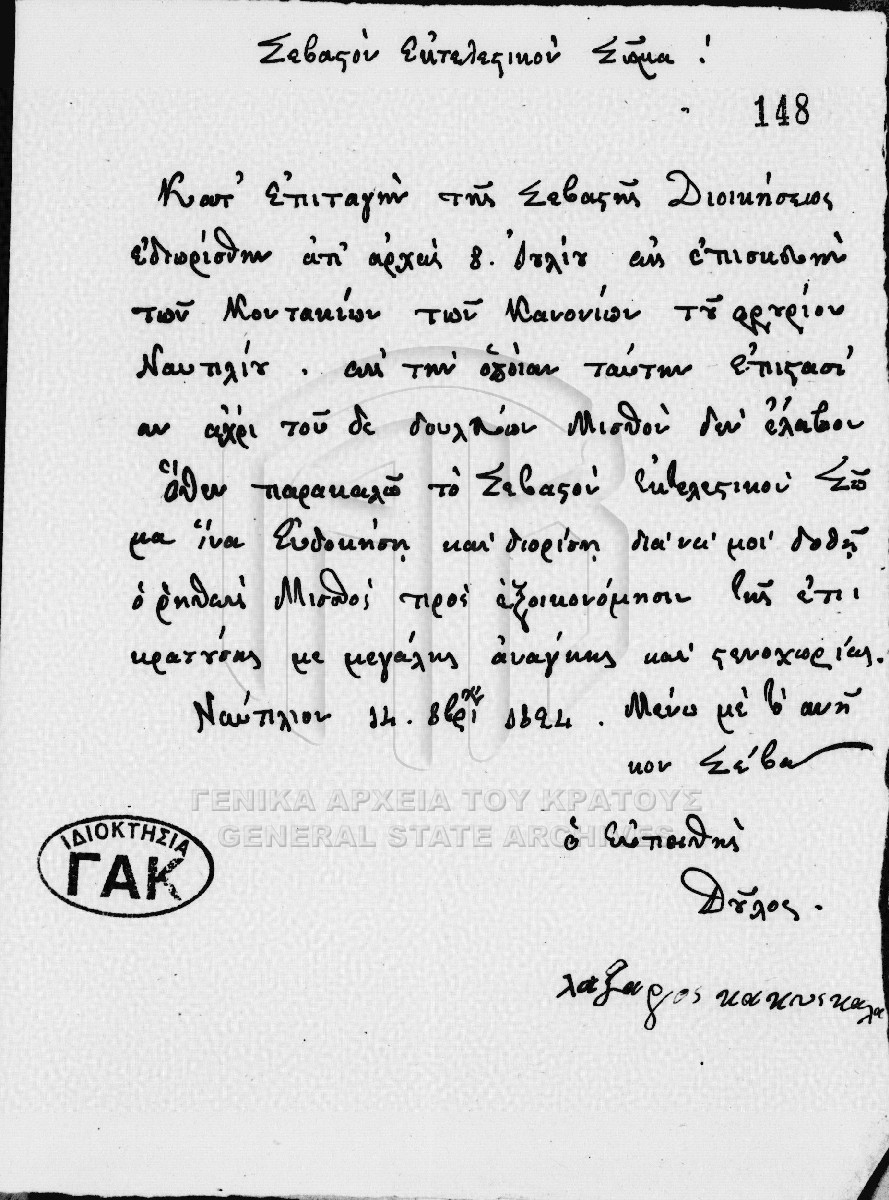 Σεβαστὸν Ἐκτελεστικὸν Σῶμα !
148
Κατ' ἐπιταγὴν τῆς Σεβαστῆς Διοικήσεως
ἐδιωρίσθην ἀπ' ἀρχὰς 8. Ἰουλίου εἰς ἐπισκευὴν
τῶν Κοντακίων τῶν Κανονίων τοῦ φρουρίου
Ναυπλίου . εἰς τὴν ὁποίαν ταύτην ἐπιστασί
αν ἄχρι τοῦ δε δουλεύων Μισθὸν δεν ἔλαβον
Ὅθεν παρακαλῶ τὸ Σεβαστὸν Ἐκτελεστικὸν Σῶ
μα ἵνα Εὐδοκήσῃ καὶ διορίσῃ διὰ νὰ μοὶ δοθῇ
ὁ ῥηθεὶς Μισθὸς πρὸς ἐξοικονόμησιν τῆς ἐπι
κρατούσας με μεγάλης ἀνάγκης καὶ στενοχωρίας.
Ναύπλιον 14. 8βρίου 1824 . Μένω μὲ τὸ ἀνῆ
κον Σέβας
ὁ Εὐπειθὴς
Δοῦλος .
λαζαρος
ΓΕΝΙΚΑ ΑΡΧΕΙΑ ΤΟΥ ΚΡΑΤΟΥΣ
GENERAL STATE ARCHIVES
ΙΔΙΟΚΤΗΣΙΑ
ΓΑΚ